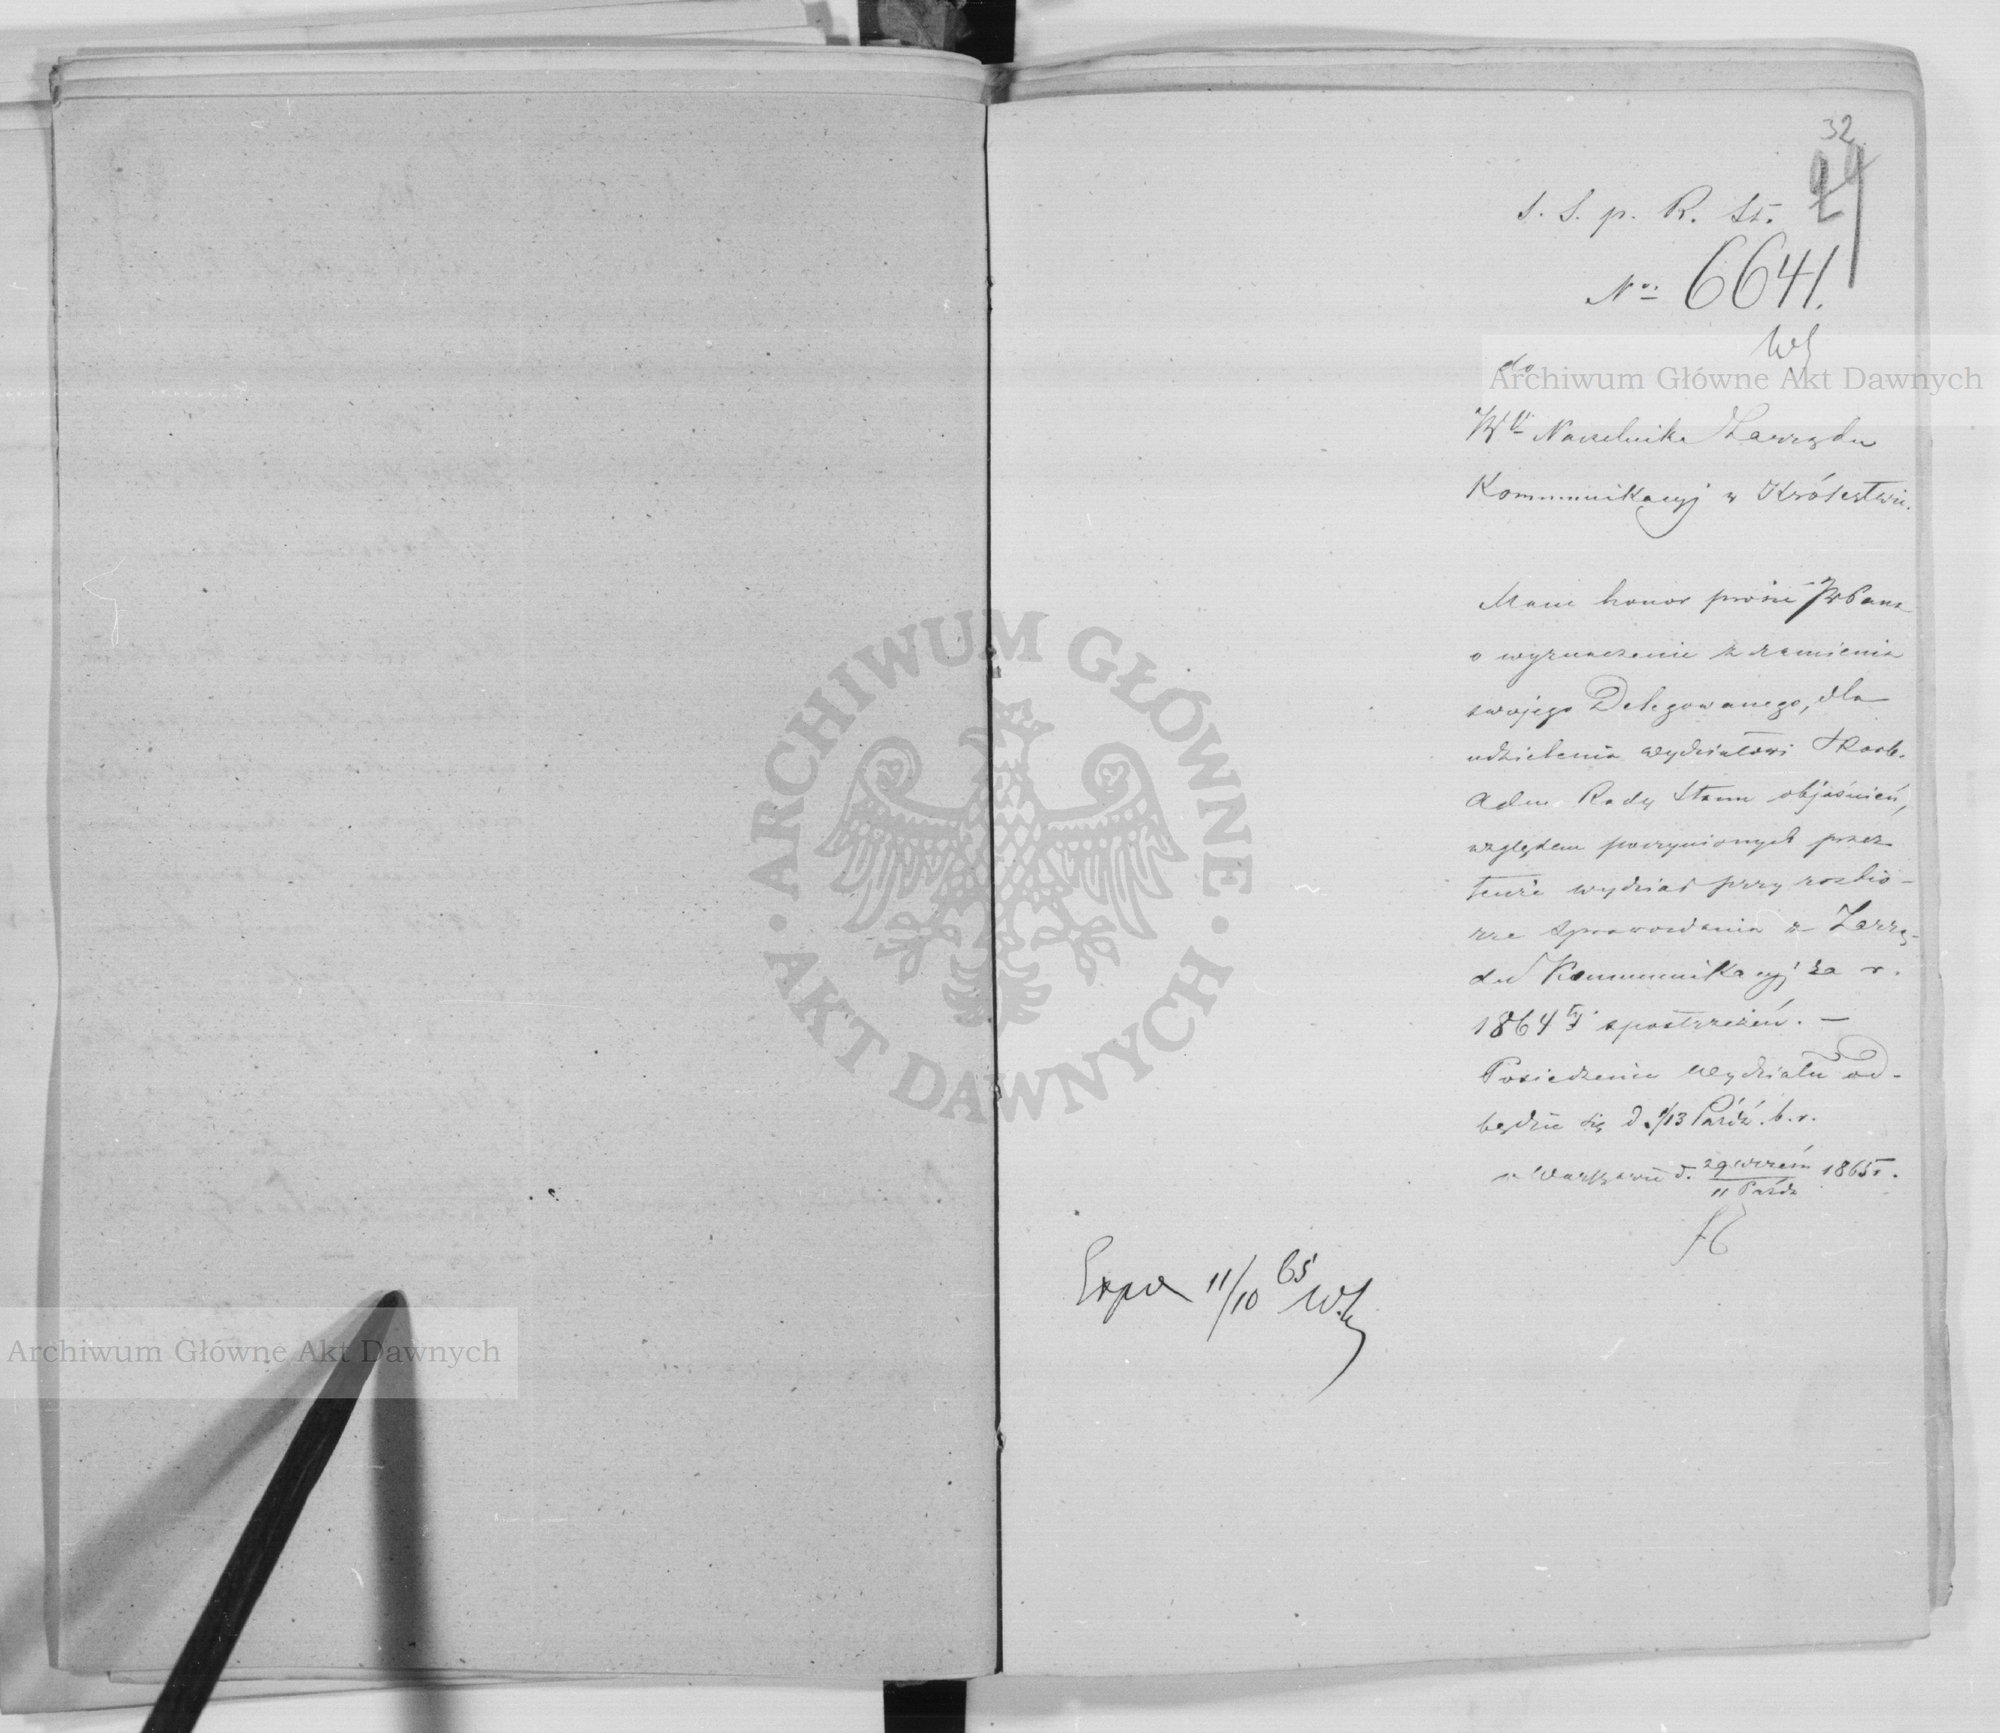 32
29
S. S. p. R. St.
No 6641.
do
JW Naczelnika Zarządu
Kommunikacyj w Królestwie.
Mam honor prosić JW Pana
o wyznaczenie z ramienia
swojego Delegowanego, dla
udzielenia wydziałowi Skarb.
Adm Rady Stanu objaśnień,
względem poczynionych przez
tenże wydział przy rozbio-
rze sprawozdania z Zarzą-
du Kommunikacyj za r.
1864 ty spostrzeżeń. —
Posiedzenie wydziału od-
będzie się d. 1/13 Paźdź. b. r.
w Warszawie d. 29 wrześn / 11 Paźdz 1865 r.
Exp 11/10 65
ARCHIWUM GŁÓWNE AKT DAWNYCH
Archiwum Główne Akt Dawnych
Archiwum Główne Akt Dawnych